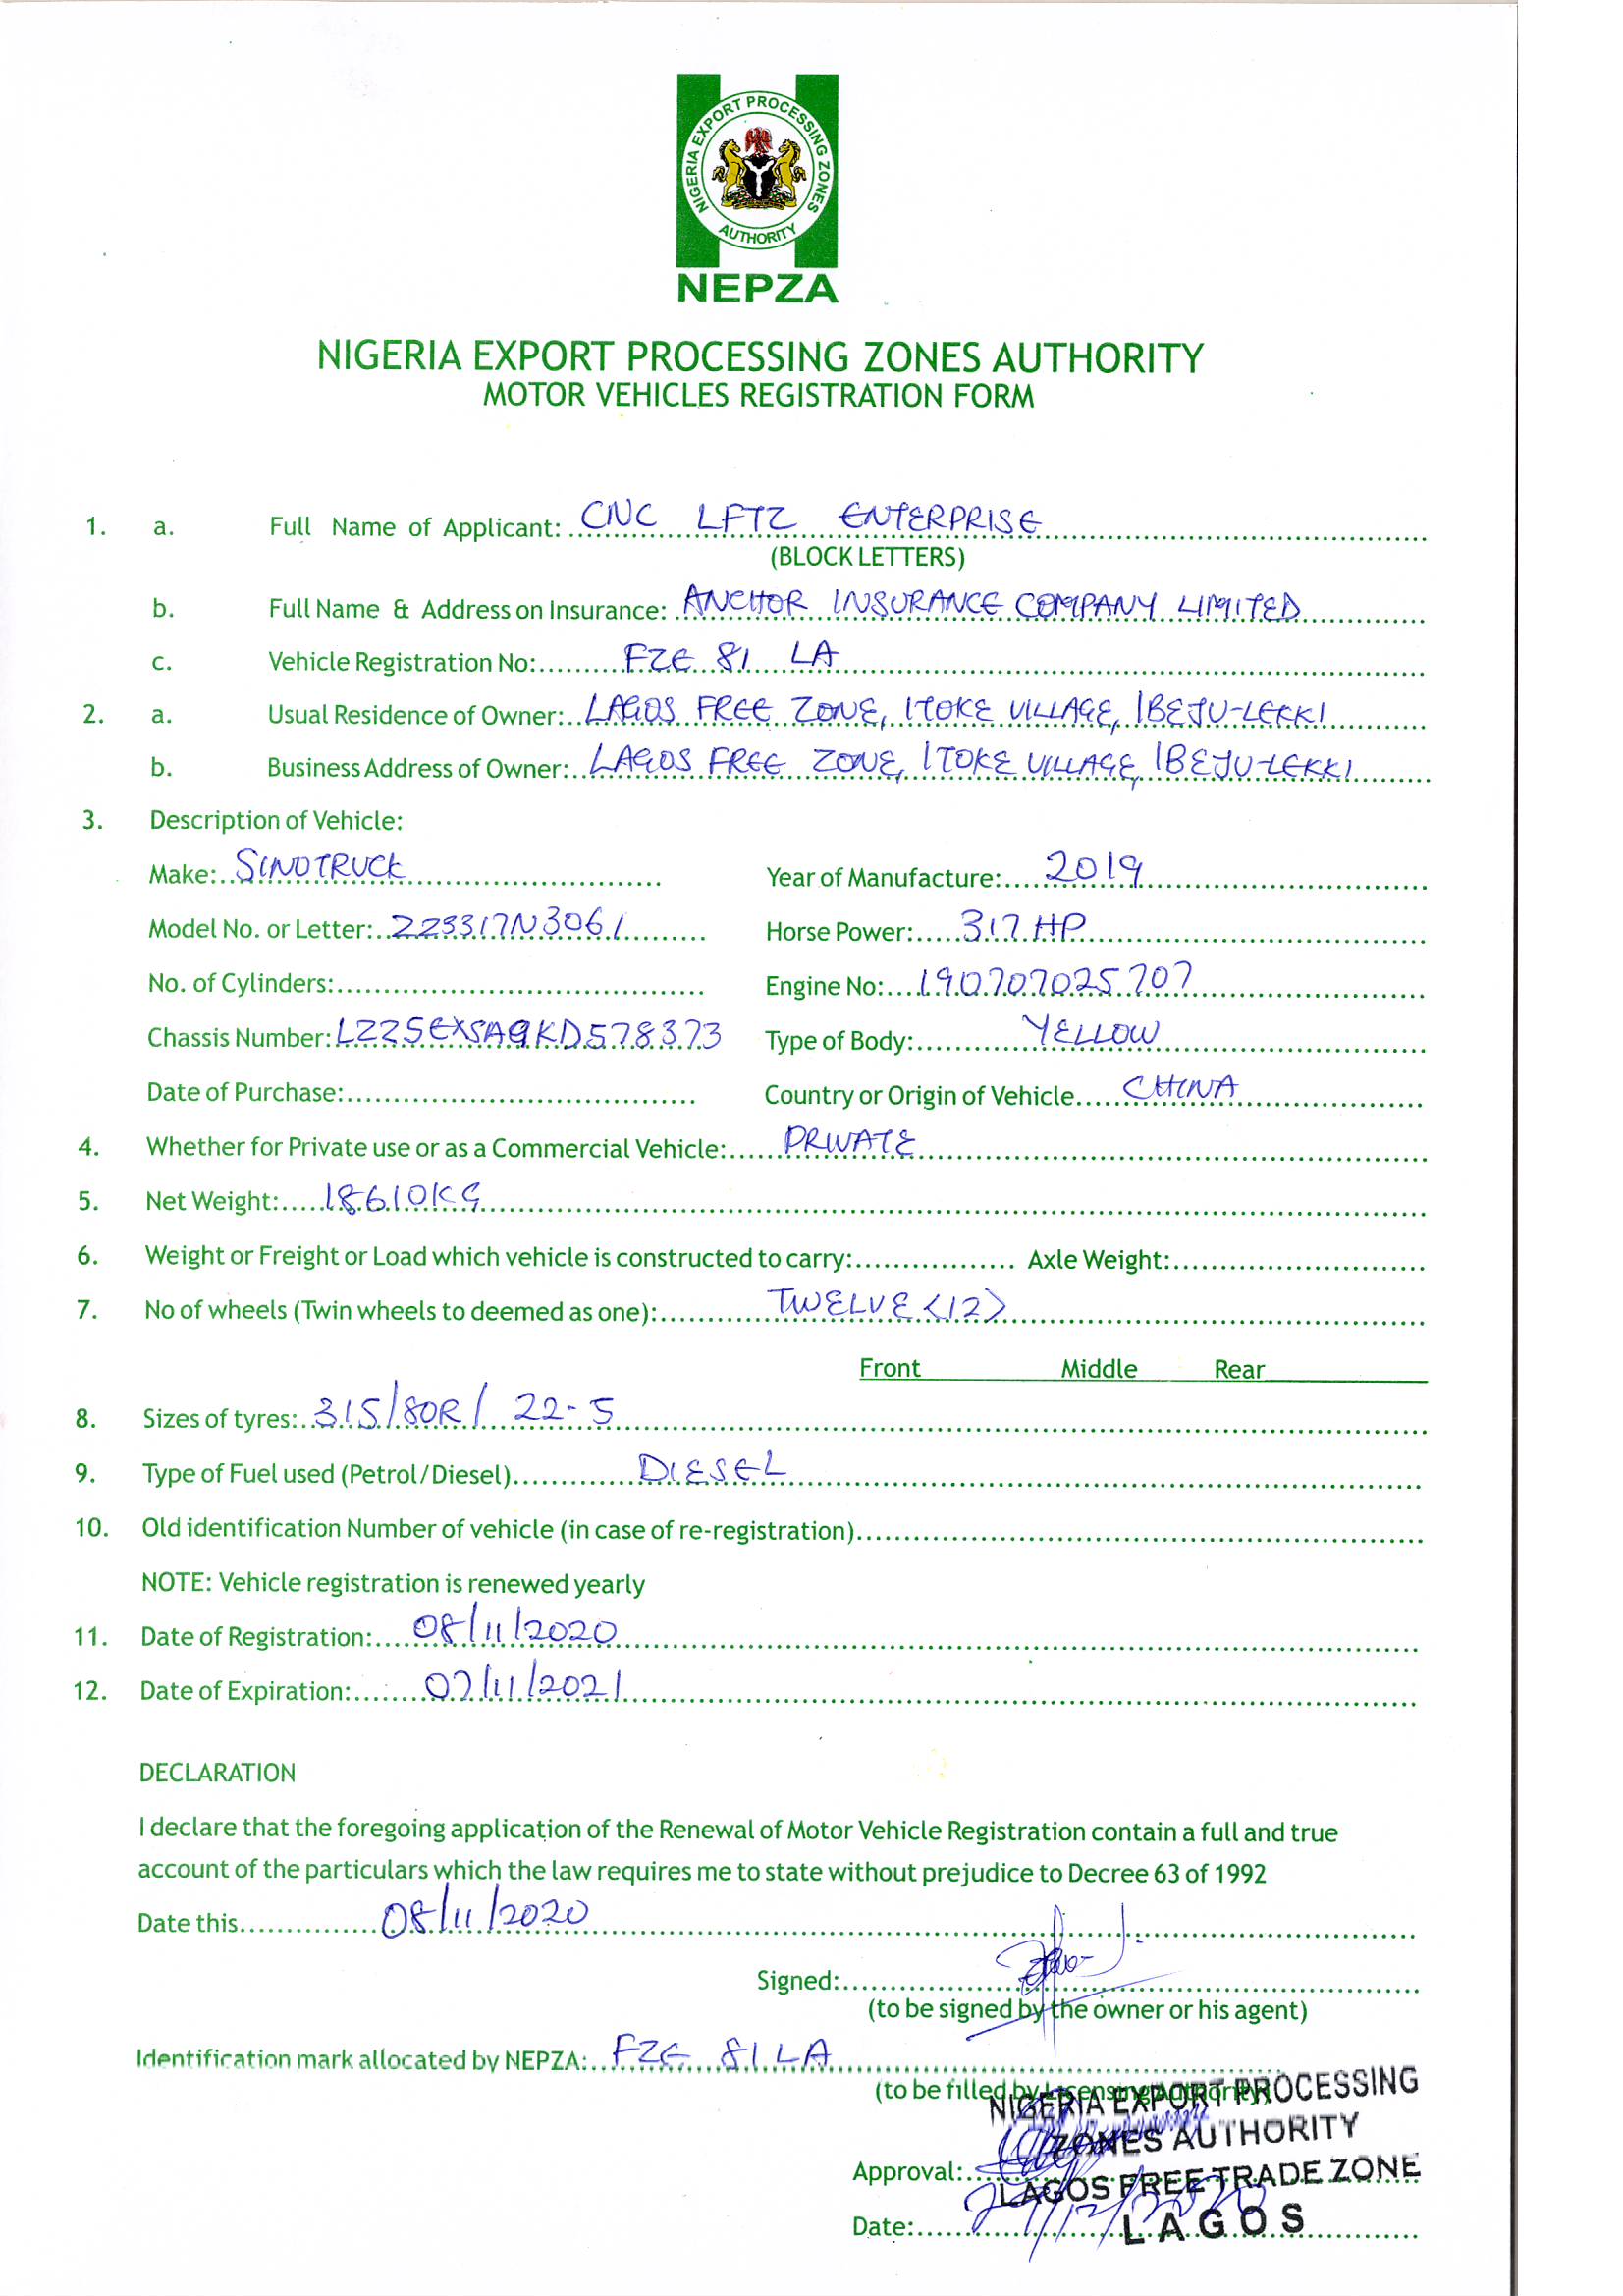 NIGERIA EXPORT PROCESSING ZONES
AUTHORITY
NEPZA
NIGERIA EXPORT PROCESSING ZONES AUTHORITY
MOTOR VEHICLES REGISTRATION FORM
1. a. Full Name of Applicant: CNC LFTZ ENTERPRISE
(BLOCK LETTERS)
b. Full Name & Address on Insurance: ANCHOR INSURANCE COMPANY LIMITED
c. Vehicle Registration No: FZE 81 LA
2. a. Usual Residence of Owner: LAGOS FREE ZONE, ITOKE VILLAGE, IBEJU-LEKKI
b. Business Address of Owner: LAGOS FREE ZONE, ITOKE VILLAGE, IBEJU-LEKKI
3. Description of Vehicle:
Make: SINOTRUCK Year of Manufacture: 2019
Model No. or Letter: ZZ3317N3061 Horse Power: 317 HP
No. of Cylinders: Engine No: 190707025707
Chassis Number: LZZ5EXSA9KD578373 Type of Body: YELLOW
Date of Purchase: Country or Origin of Vehicle CHINA
4. Whether for Private use or as a Commercial Vehicle: PRIVATE
5. Net Weight: 18610KG
6. Weight or Freight or Load which vehicle is constructed to carry: Axle Weight:
7. No of wheels (Twin wheels to deemed as one): TWELVE <12>
Front Middle Rear
8. Sizes of tyres: 315/80R/ 22-5
9. Type of Fuel used (Petrol/Diesel) DIESEL
10. Old identification Number of vehicle (in case of re-registration)
NOTE: Vehicle registration is renewed yearly
11. Date of Registration: 08/11/2020
12. Date of Expiration: 07/11/2021
DECLARATION
I declare that the foregoing application of the Renewal of Motor Vehicle Registration contain a full and true
account of the particulars which the law requires me to state without prejudice to Decree 63 of 1992
Date this 08/11/2020
Signed:
(to be signed by the owner or his agent)
Identification mark allocated by NEPZA: FZE 81 LA
(to be filled by Licensing Authority)
NIGERIA EXPORT PROCESSING
ZONES AUTHORITY
Approval:
LAGOS FREE TRADE ZONE
Date:
LAGOS